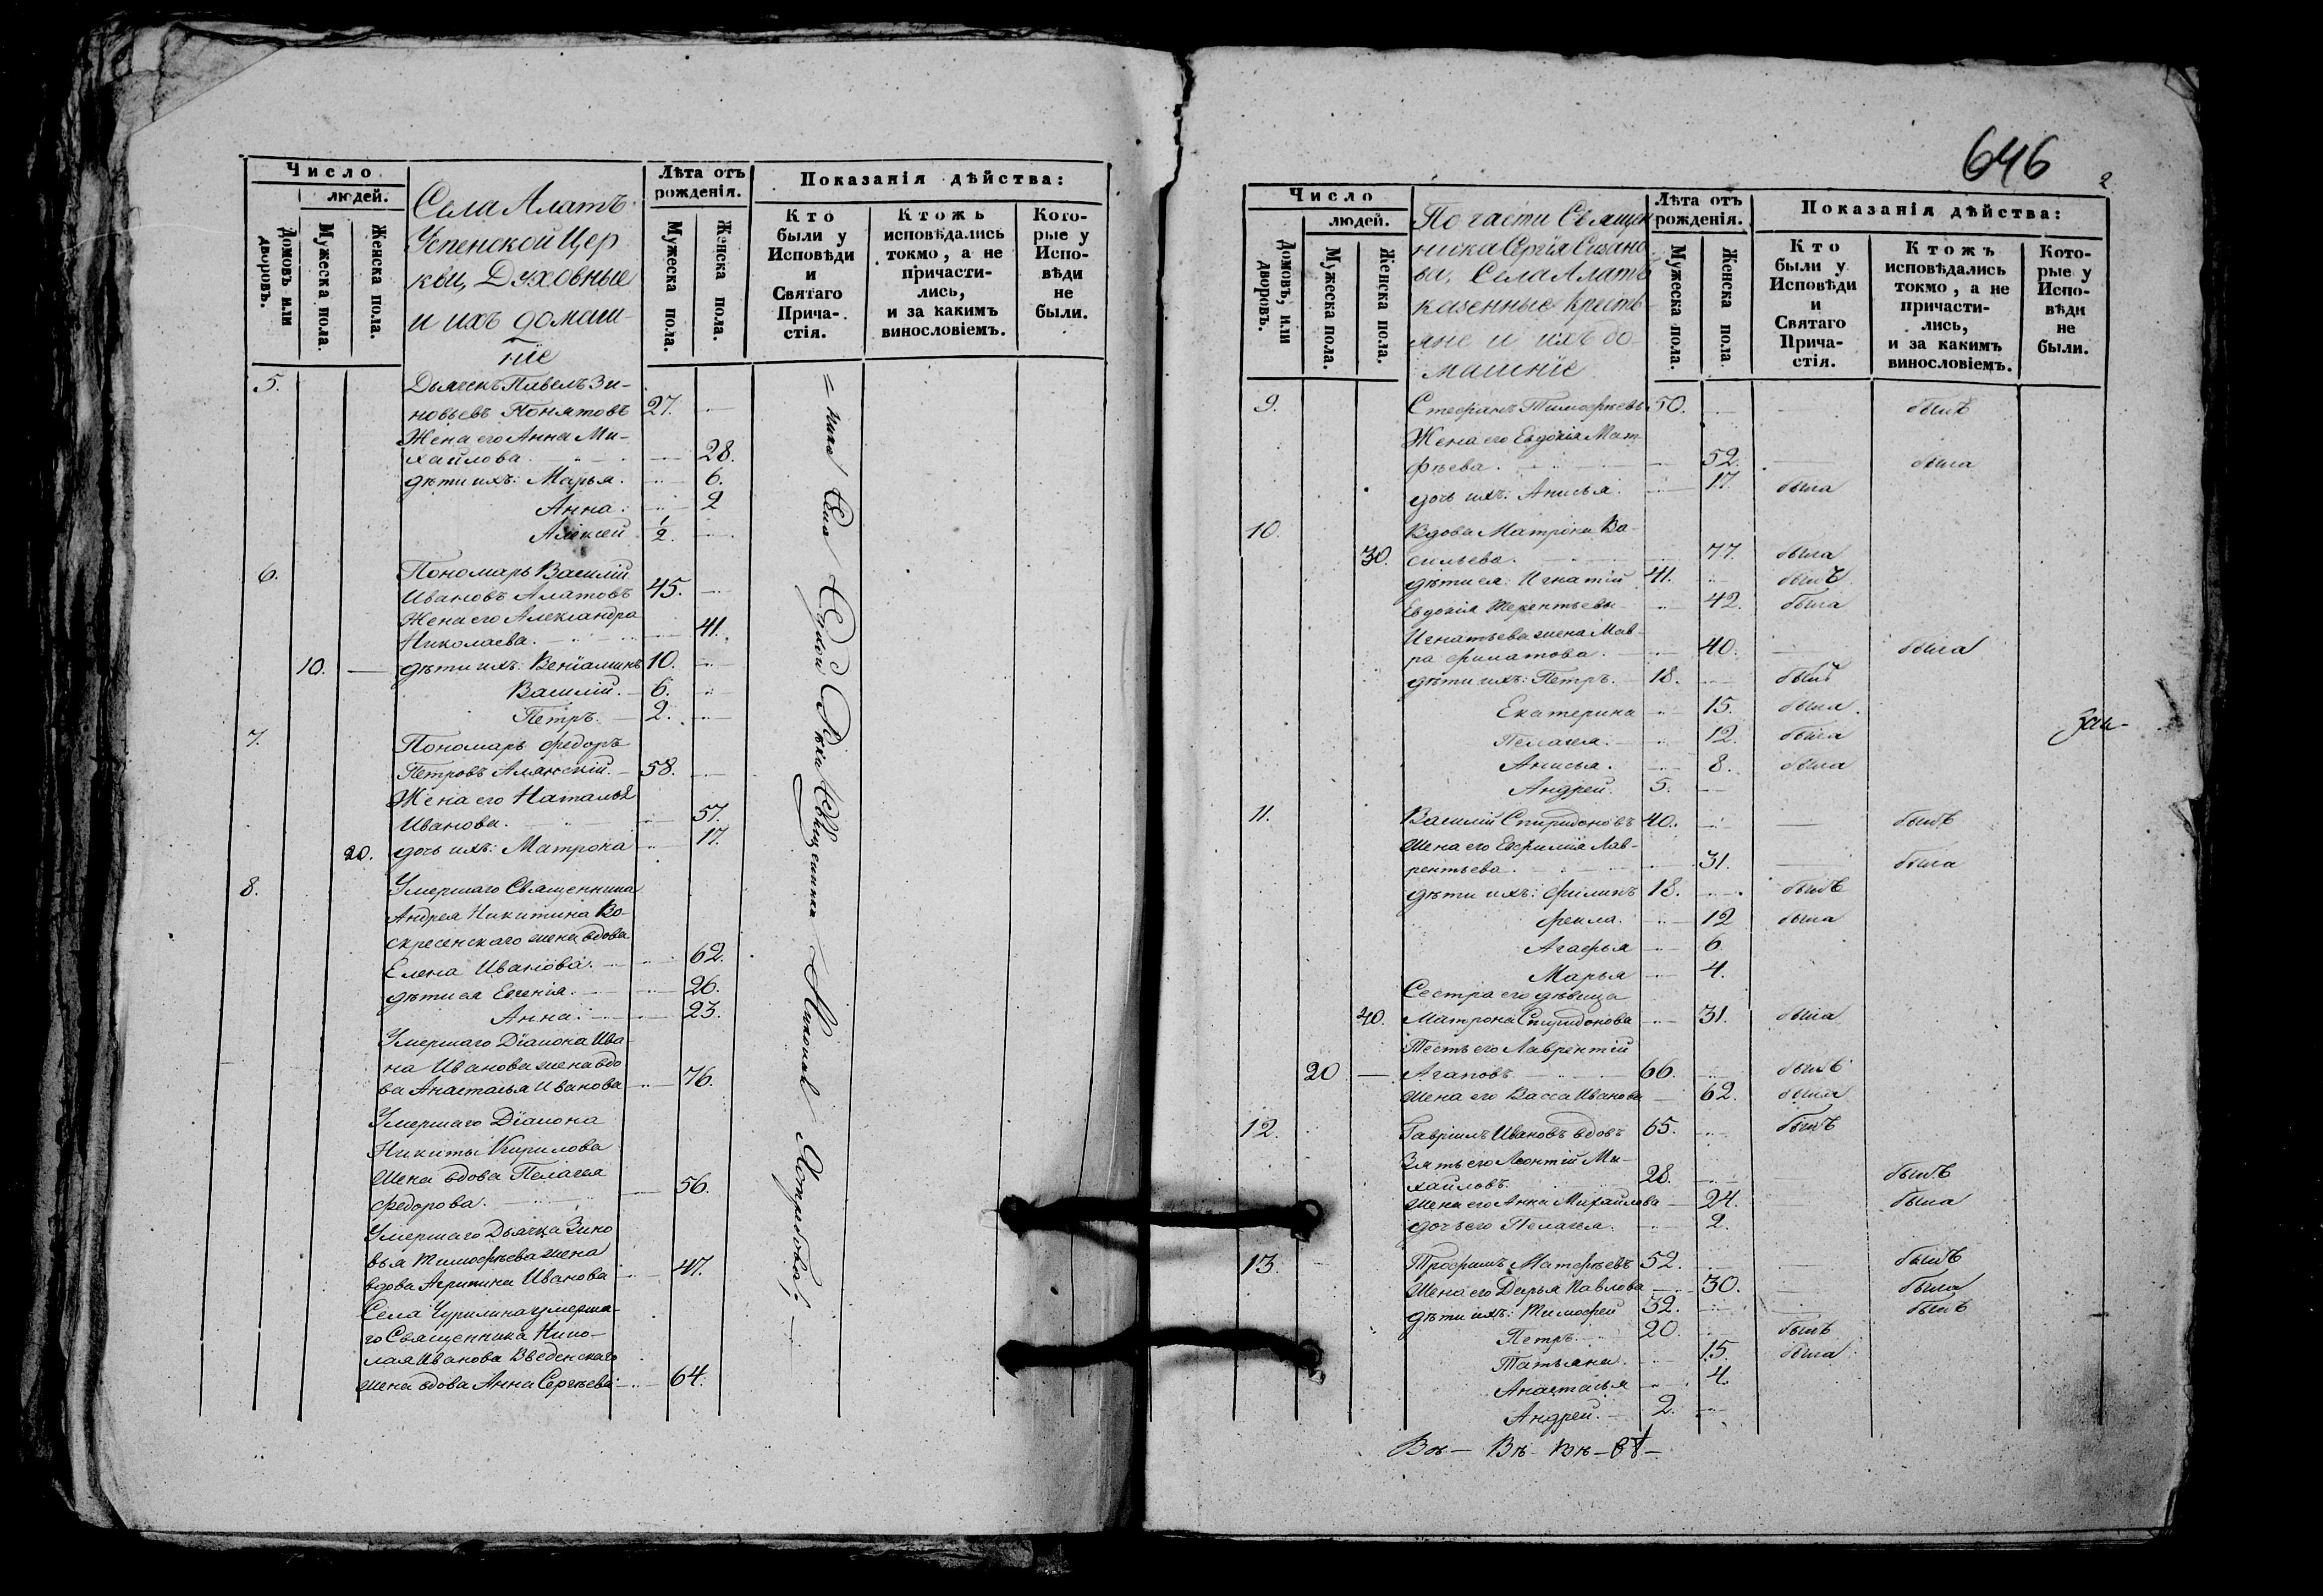 Число
людей.
Домовъ или дворовъ.
Мужеска пола.
Женска пола.
Села Алатъ
Успенской Цер
кви, Духовные
и ихъ домаш-
ніе
Лѣта отъ рожденія.
Мужеска пола.
Женска пола.
Показанія дѣйства:
Кто были у Исповѣди и Святаго Прича-стія.
Ктожъ исповѣдались токмо, а не причасти-лись, и за какимъ винословіемъ.
Кото-рые у Испо-вѣди не были.
5. Дьячекъ Павелъ Зи-
новьевъ Понятовъ 27.
Жена его Анна Ми-
хайлова. 28.
дѣти ихъ: Марья. 6.
Анна. 2
Алексѣй 1/2.
6. Пономарь Василій
Ивановъ Алатовъ 45.
Жена его Александра
Николаева. 41.
10. дѣти ихъ: Веніаминъ 10.
Василій. 6.
Петръ. 2.
7. Пономарь Федоръ
Петровъ Алянскій. 58.
Жена его Наталья
Иванова. 57.
20. дочь ихъ: Матрона 17.
8. Умершаго Священника
Андрея Никитина Во-
скресенскаго жена вдова
Елена Иванова. 62.
дѣти ея Евгенія. 26.
Анна. 23.
Умершаго Діакона Ива-
на Иванова жена вдо
ва Анастасья Иванова 76.
Умершаго Діакона
Никиты Кирилова
жена вдова Пелагея
Федорова. 56.
Умершаго Дьячка Зино
вья Тимофѣева жена
вдова Агрипина Иванова 47.
Села Чурилина умерша-
го Священника Нико-
лая Иванова Введенскаго
жена вдова Анна Сергѣева 64.
Священникъ Николай
646
2
Число
людей.
Домовъ, или дворовъ.
Мужеска пола.
Женска пола.
По части Священ
ника Сергія
ва, Села Алатъ
казенные кресть-
яне и ихъ до-
машніе
Лѣта отъ рожденія.
Мужеска пола.
Женска пола
Показанія дѣйства:
Кто были у Исповѣди и Святаго Прича-стія.
Ктожъ исповѣдались токмо, а не причасти-лись, и за какимъ винословіемъ.
Кото-рые у Испо-вѣди не были.
9. Стефанъ Тимофѣевъ 50. былъ
Жена его Евдокія Мат-
фѣева. 52. была
дочь ихъ: Анисья. 17. была
10. Вдова Матрона Ва-
30. сильева. 77. была
дѣти ея: Игнатій 41. былъ
Евдокія Терентьевы 42. была
Игнатьева жена Мав-
ра Филатова. 40. была
дѣти ихъ: Петръ. 18. былъ
Екатерина 15. была
Пелагея. 12. была
Анисья. 8. была
Андрей. 5.
11. Василій Спиридоновъ 40. былъ
Жена его Евфимія Лав-
рентьева. 31. была
дѣти ихъ: Филипъ 18. былъ
Фекла. 12 была
Агафья 6
Марья 4.
Сестра его дѣвица
40. Матрона Спиридонова 31. была
Тесть его Лаврентій
20 Агаповъ. 66. былъ
Жена его Васса Иванова 62. была
12. Гавріилъ Ивановъ вдовъ 65. былъ
Зять его Леонтій Ми-
хайловъ. 28. былъ
Жена его Анна Михайлова 24. была
дочь его Пелагея. 2.
13. Трофимъ Матфѣевъ 52. былъ
Жена его Дарья Павлова 30. была
дѣти ихъ: Тимофей 32. былъ
Петръ. 20. былъ
Татьяна. 15. была
Анастасья 4.
Андрей. 2.